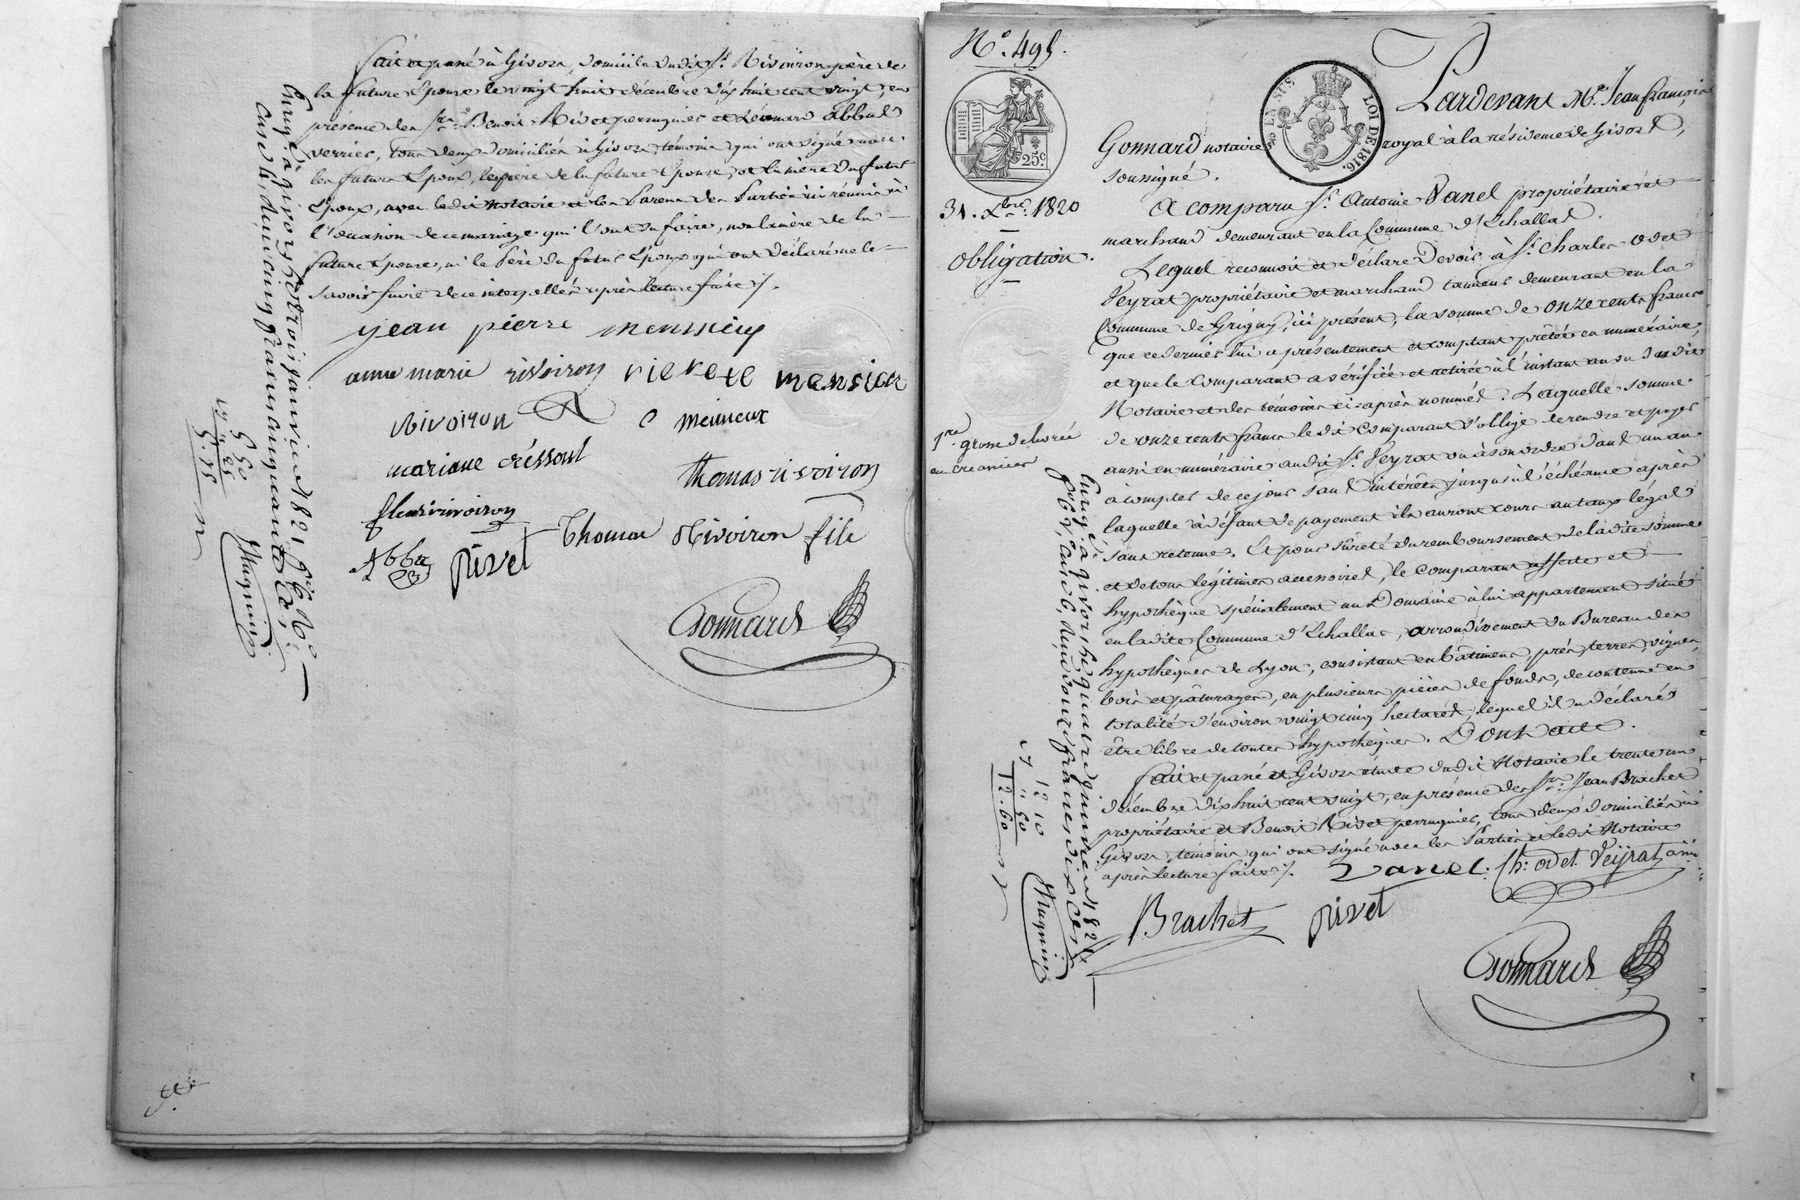 fait et passé à Givors, domicile dudit Sr. Rivoiron père de
la future Epouse le vingt huit décembre dix huit cent vingt, en
présence des Srs. Benoit Rivet perruquier et Léonard Abbal
verrier, tous deux domiciliés à Givors, témoins qui ont signé avec
les futurs Epoux, le père de la future Epouse, et la mère du futur
Epoux, avec ledit Notaire et les Parens des Parties ici réunis à
l'occasion de ce mariage qui l'ont su faire, non la mère de la
future Epouse, ni le Père du futur Epoux qui ont déclaré ne le
savoir faire de ce interpellés après lecture faite /.
jean pierre
anne marie rivoiron
Rivoiron
mariane
thomas rivoiron
fleuri rivoiron
Thomas Rivoiron fils
Abba
Rivet
Gonnard
Enregé. à Givors le trois janvier 1821, fo. 6 No.
Case 4, reçu cinq francs cinquante Ces.
5 50
" 55
Mugnier
No. 495.
25 c
EN SUS
LOI DE 1816.
31. Xbre. 1820
Obligation.
1re. grosse délivrée
au créancier
Pardevant Me. Jean François
Gonnard notaire royal à la résidence de Givors,
soussigné.
A comparu Sr. Antoine Vanel propriétaire et
marchand demeurant en la Commune d'Echallas.
Lequel reconnoit et déclare Devoir à Sr. Charles Odet
Peyrat propriétaire et marchand tanneur demeurant en la
Commune de Grigny, ici présent, la somme de onze cents francs
que ce dernier lui a présentement et comptant prêtée en numéraire,
et que le Comparant a vérifiée et retirée à l'instant au vu dudit
Notaire et des témoins ci-après nommés. Laquelle somme
de onze cents francs ledit Comparant s'oblige de rendre et payer
aussi en numéraire audit Sr. Peyrat ou à son ordre dans un an
à compter de ce jour sans intérêts jusqu'à l'échéance après
laquelle à défaut de payement ils auront cours au taux légal
sans retenue. Et pour sûreté du remboursement de ladite somme
et de tous légitimes accessoires, le Comparant affecte et
hypothèque spécialement un Domaine à lui appartenant situé
en ladite Commune d'Echallas, arrondissement du Bureau des
hypothèques de Lyon, consistant en bâtimens, prés, terres, vignes,
bois et pâturages, en plusieurs pièces de fonds, de contenue en
totalité d'environ vingt cinq hectares, lequel il a déclaré
être libre de toutes hypothèques. Dont acte.
fait et passé à Givors étude dudit Notaire le trente un
décembre dix huit cent vingt, en présence des Srs. Jean Brachet
propriétaire et Benoit Rivet perruquier, tous deux domiciliés à
Givors, témoins qui ont signé avec les Parties et ledit Notaire
après lecture faite /.
Vanel. Ch: odet Peyrat ainé
Brachet
Rivet
Gonnard
Enregé. à Givors le quatre janvier 1821,
fo. 6 Vo. Case 6, reçu onze francs dix Ces.
12.60
Mugnier